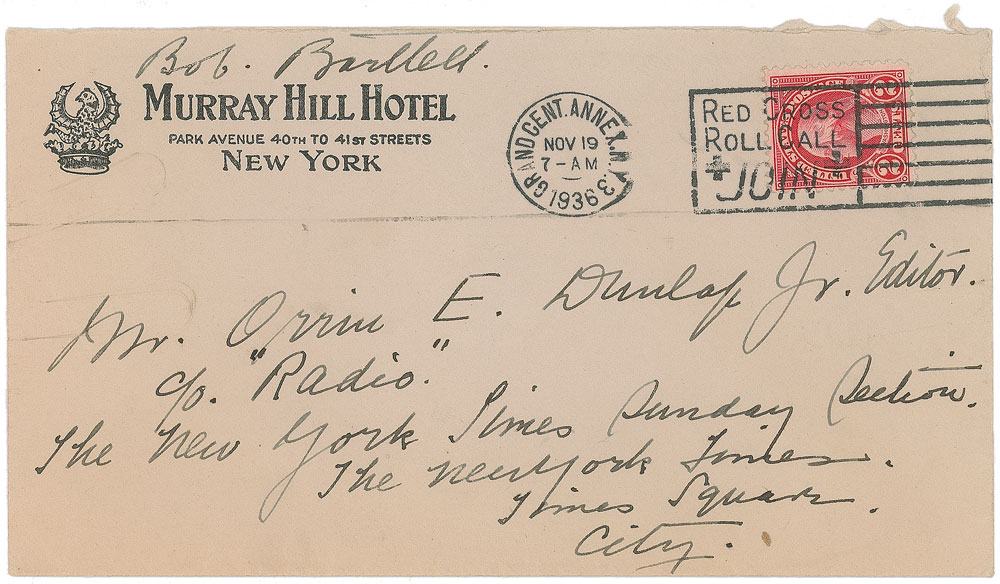 Bob. Bartlett.
MURRAY HILL HOTEL
PARK AVENUE 40TH TO 41ST STREETS
NEW YORK
GRAND CENT. ANNEX. N.Y. 3
NOV 19
7-AM
1936
RED CROSS
ROLL CALL
JOIN
2 2
Mr. Orrin E. Dunlap Jr. Editor.
c/o. "Radio."
The New York Times Sunday Section.
The New York Times.
Times Square.
City.